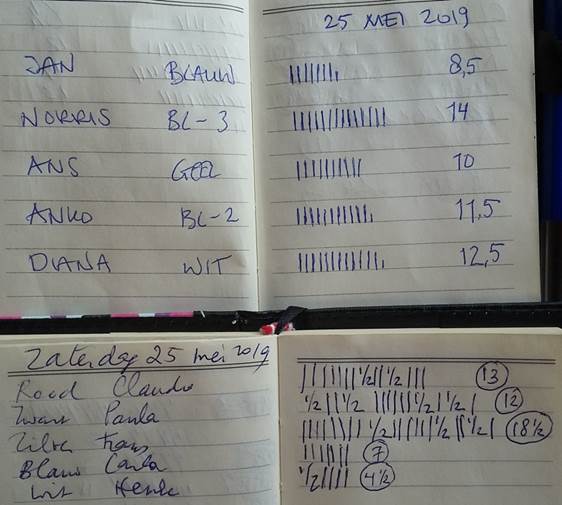 25 MEI 2019
JAN BLAUW ||||||||ı 8,5
NORRIS BL-3 |||||||||||||| 14
ANS GEEL |||||||||| 10
ANKO BL-2 |||||||||||ı 11,5
DIANA WIT ||||||||||||ı 12,5
Zaterdag 25 mei 2019
Rood Claudia ||||||| ½ || ½ ||| 13
Zwart Paula ½ || ½ |||||| ½ | ½ | 12
Zilver Frans |||||||| ½ |||||| ½ || ½ | 18½
Blauw Carla ||||||| 7
Wit Henk ½ |||| 4½